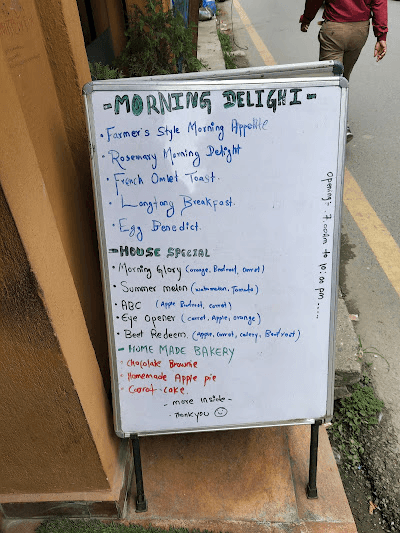 -MORNING DELIGHT-
• Farmer's Style Morning Appetite
• Rosemary Morning Delight
• French Omlet Toast.
• Langtang Breakfast.
• Egg Benedict.
-HOUSE SPECIAL
• Morning Glory (orange, Beetroot, Carrot)
• Summer melon (watermelon, Tomato)
• ABC (Apple Beetroot, carrot)
• Eye Opener (carrot, Apple, orange)
• Beet Redeem. (Apple, Carrot, celery, Beetroot)
-HOME MADE BAKERY
• Chocolate Brownie
Homemade Apple pie
Carrot cake.
- more inside -
- Thank you ☺
Opening:- 7:00am to 10:00 pm.....